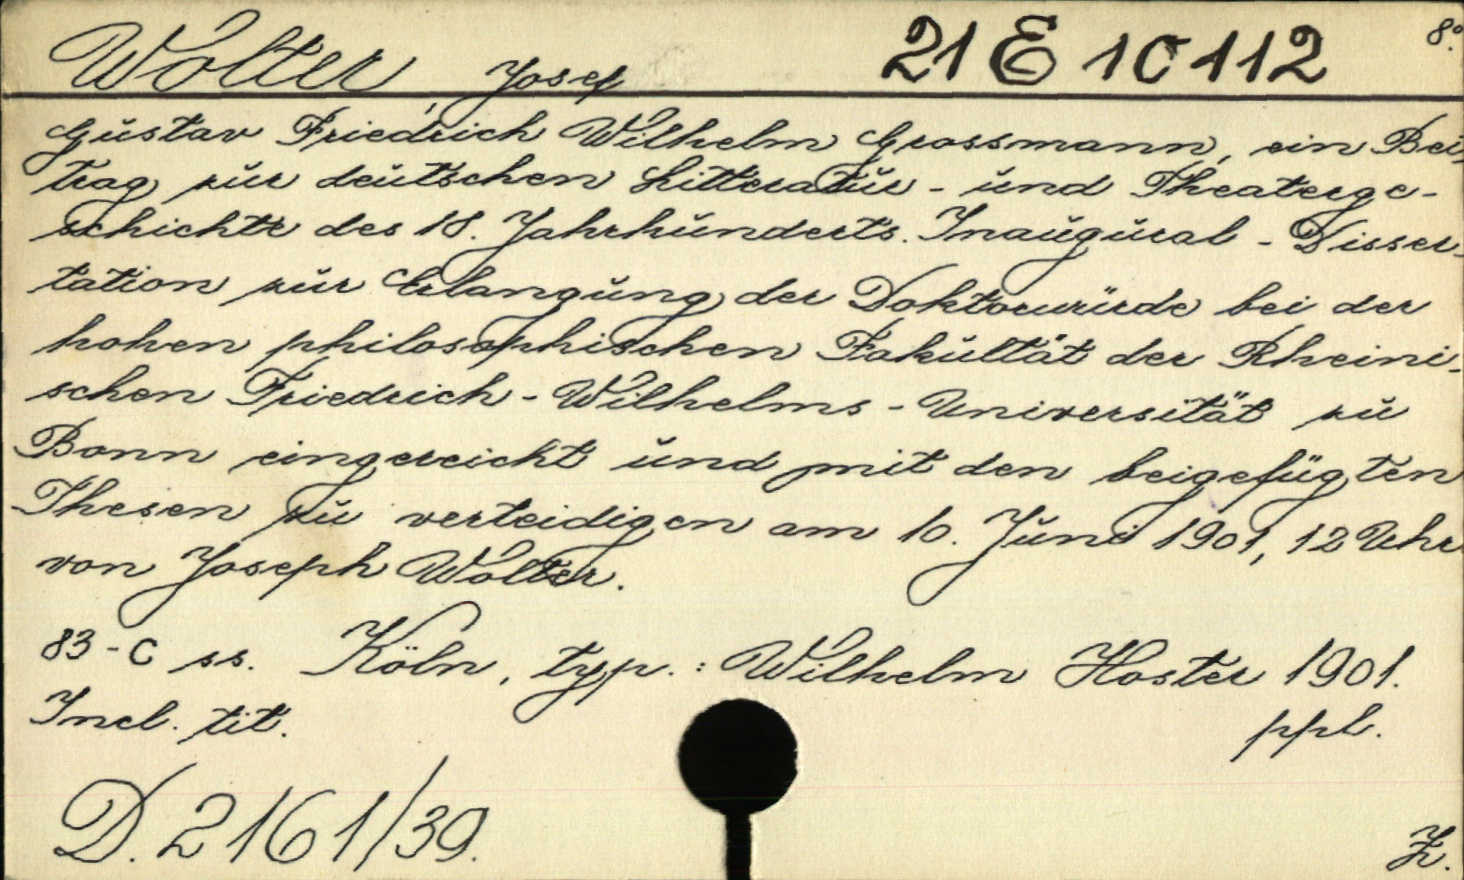 Wolter, Josef 21 E 10 112 8°.
Gustav Friedrich Wilhelm Grossmann, ein Bei-
trag zur deutschen Litteratur- und Theaterge-
schichte des 18. Jahrhunderts. Inaugural-Disser-
tation zur Erlangung der Doktorwürde bei der
hohen philosophischen Fakultät der Rheini-
schen Friedrich-Wilhelms-Universität zu
Bonn eingereicht und mit den beigefügten
Thesen zu verteidigen am 10. Juni 1901, 12 Uhr
von Joseph Wolter.
83-C ss. Köln, typ.: Wilhelm Hoster 1901.
Incl. tit. ppl.
D. 2161/39.